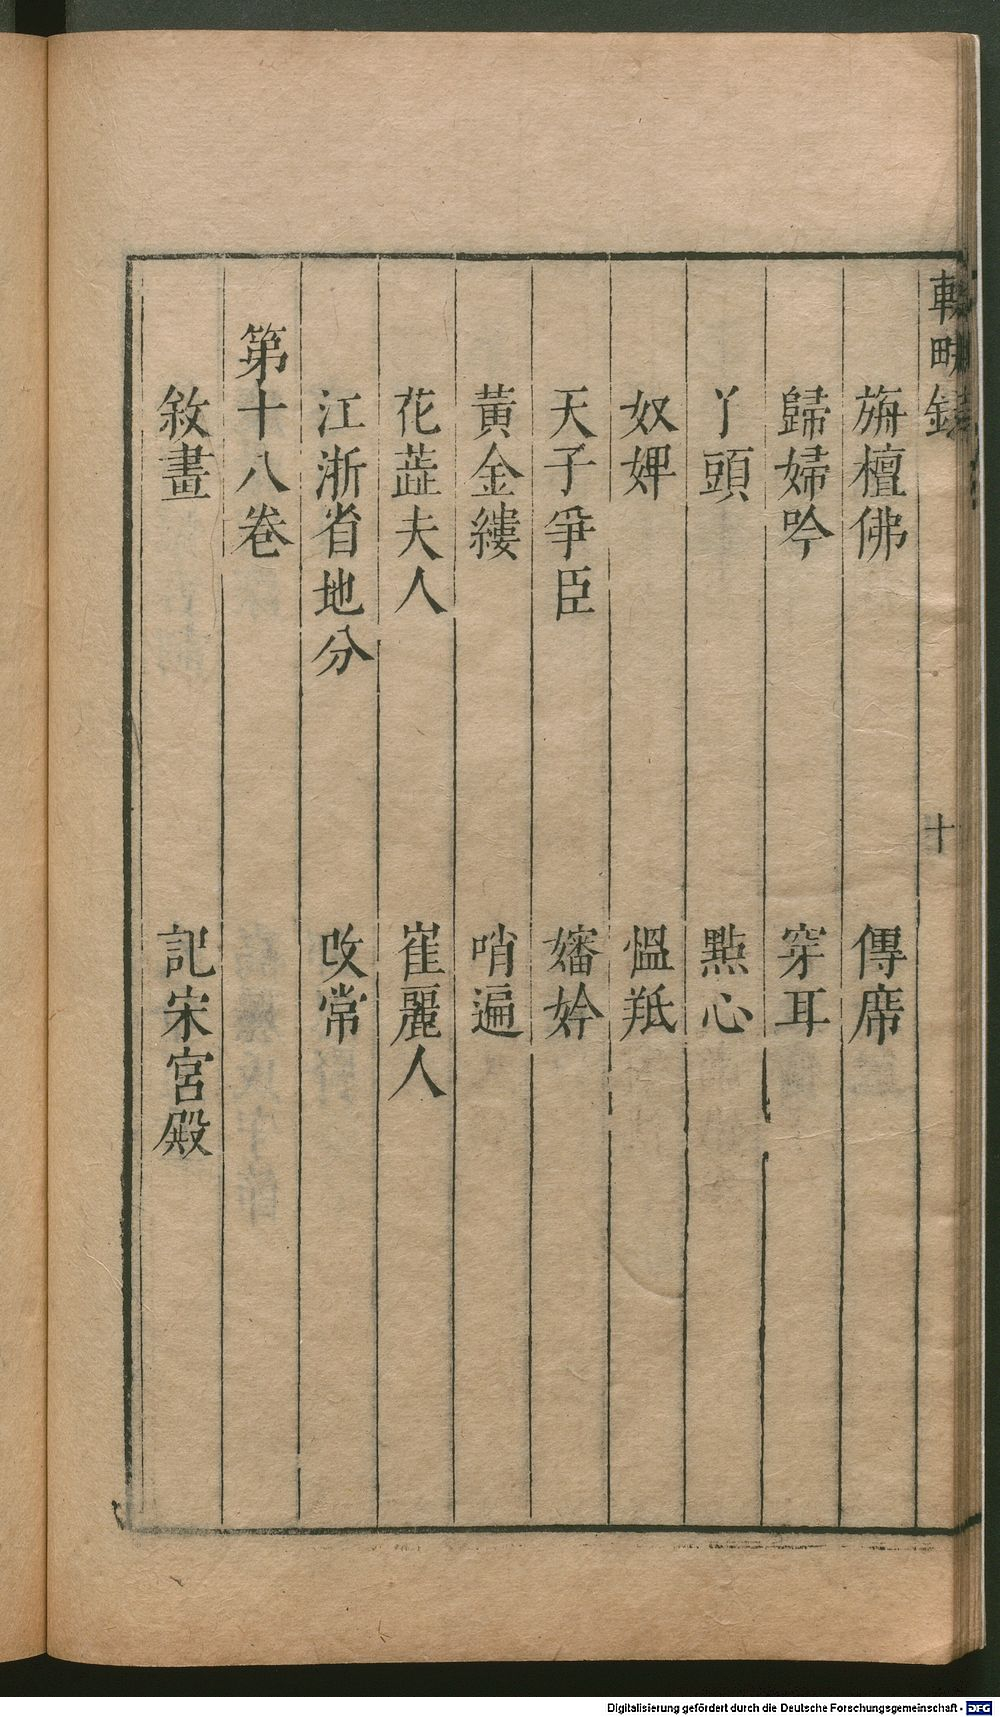 輟畊錄 十
旃檀佛 傳席
歸婦吟 穿耳
丫頭 點心
奴婢 愠羝
天子爭臣 嬸妗
黃金縷 哨遍
花蕋夫人 崔麗人
江浙省地分 改常
第十八卷
敘畫 記宋宮殿
Digitalisierung gefördert durch die Deutsche Forschungsgemeinschaft - DFG